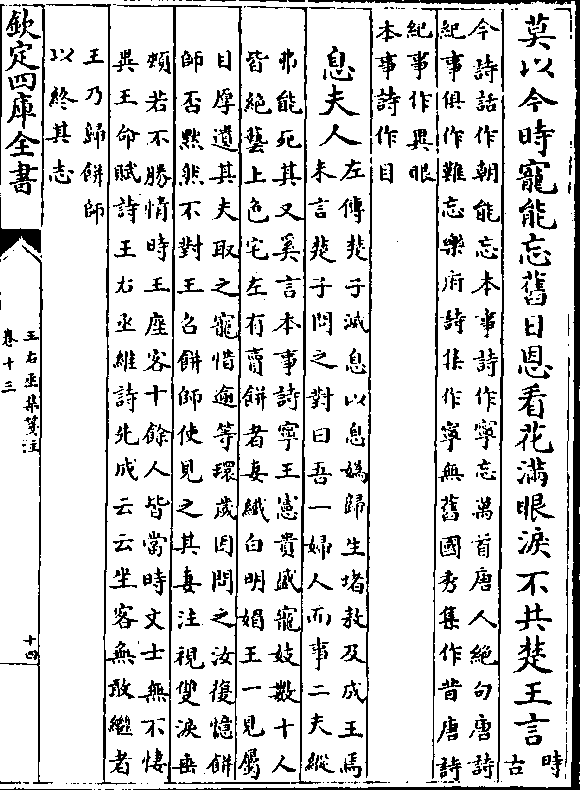 莫以今時寵能忘舊日恩看花滿眼淚不共楚王言時
古
今詩話作朝能忘本事詩作寧忘萬首唐人絕句唐詩
紀事俱作難忘樂府詩集作寧無舊國秀集作昔唐詩
紀事作異眼
本事詩作目
息夫人左傳楚子滅息以息媯歸生堵敖及成王焉
未言楚子問之對曰吾一婦人而事二夫縱
弗能死其又奚言本事詩寧王憲貴盛寵妓數十人
皆絕藝上色宅左有賣餅者妻纖白明媚王一見屬
目厚遺其夫取之寵惜逾等環歲因問之汝復憶餅
師否黙然不對王召餅師使見之其妻注視雙淚垂
頰若不勝情時王座客十餘人皆當時文士無不悽
異王命賦詩王右丞維詩先成云云坐客無敢繼者
王乃歸餅師
以終其志
欽定四庫全書
王右丞集箋注
卷十三
十四